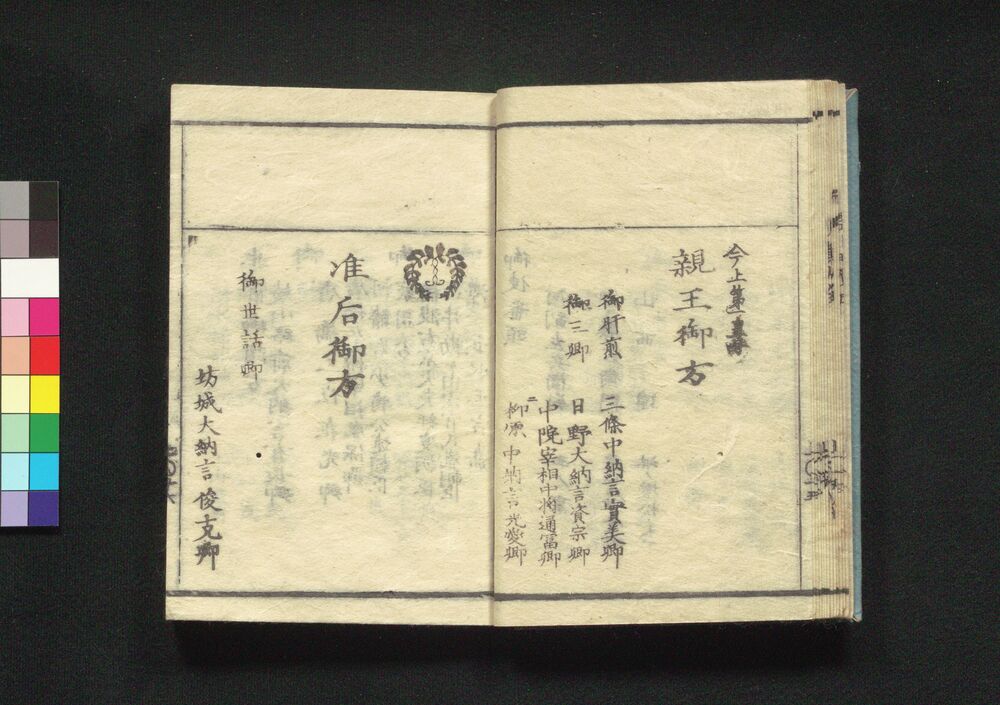 今上第一皇子
親王御方
御肝煎 三條中納言實美卿
御三卿 日野大納言資宗卿
中院宰相中将通富卿
柳原中納言光愛卿
准后御方
御世話卿
坊城大納言俊克卿